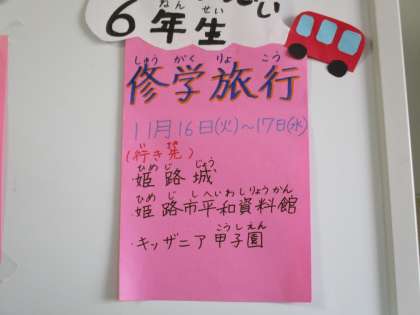 ６年生
ねんせい
しゅうがくりょこう
修学旅行
11月16日(火)～17日(水)
(行き先)
ひめじじょう
・姫路城
ひめじしへいわしりょうかん
・姫路市平和資料館
こうしえん
・キッザニア甲子園